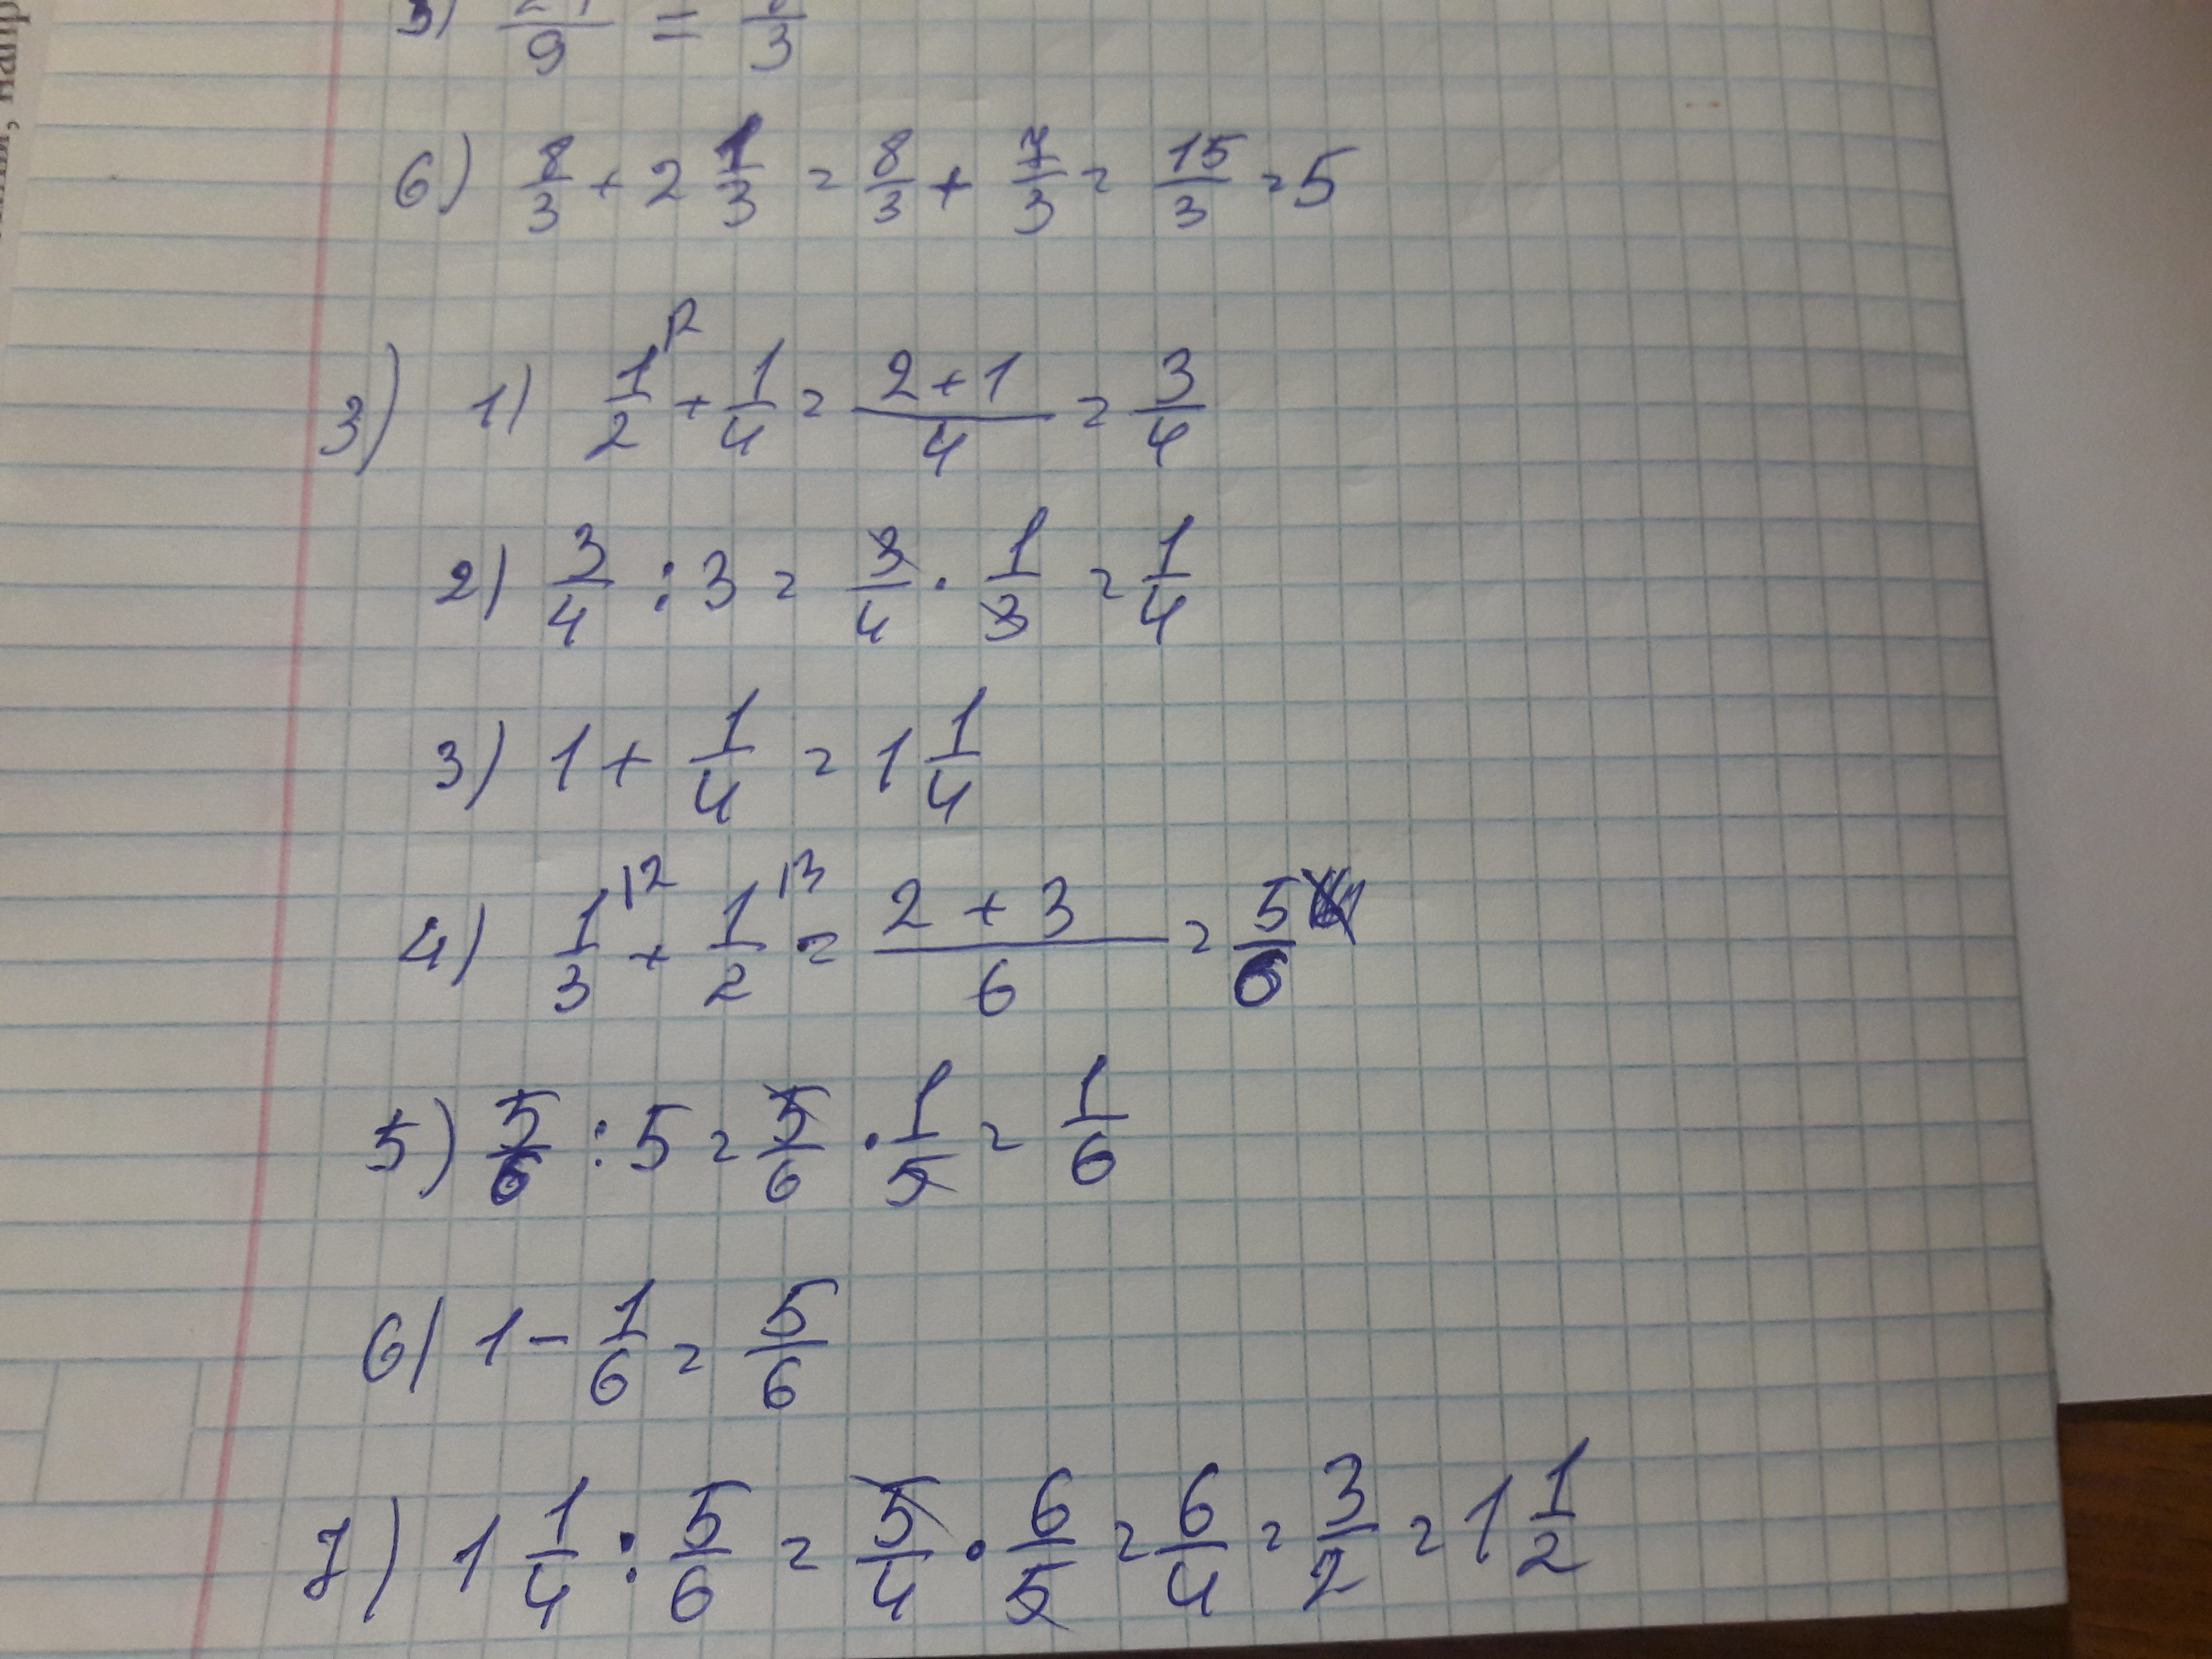 5) 24/9 = 8/3
6) 8/3 + 2 1/3 = 8/3 + 7/3 = 15/3 = 5
3) 1) 1/2 |2 + 1/4 = (2+1)/4 = 3/4
2) 3/4 : 3 = 3/4 · 1/3 = 1/4
3) 1 + 1/4 = 1 1/4
4) 1/3 |2 + 1/2 |3 = (2 + 3)/6 = 5/6
5) 5/6 : 5 = 5/6 · 1/5 = 1/6
6) 1 - 1/6 = 5/6
7) 1 1/4 : 5/6 = 5/4 · 6/5 = 6/4 = 3/2 = 1 1/2